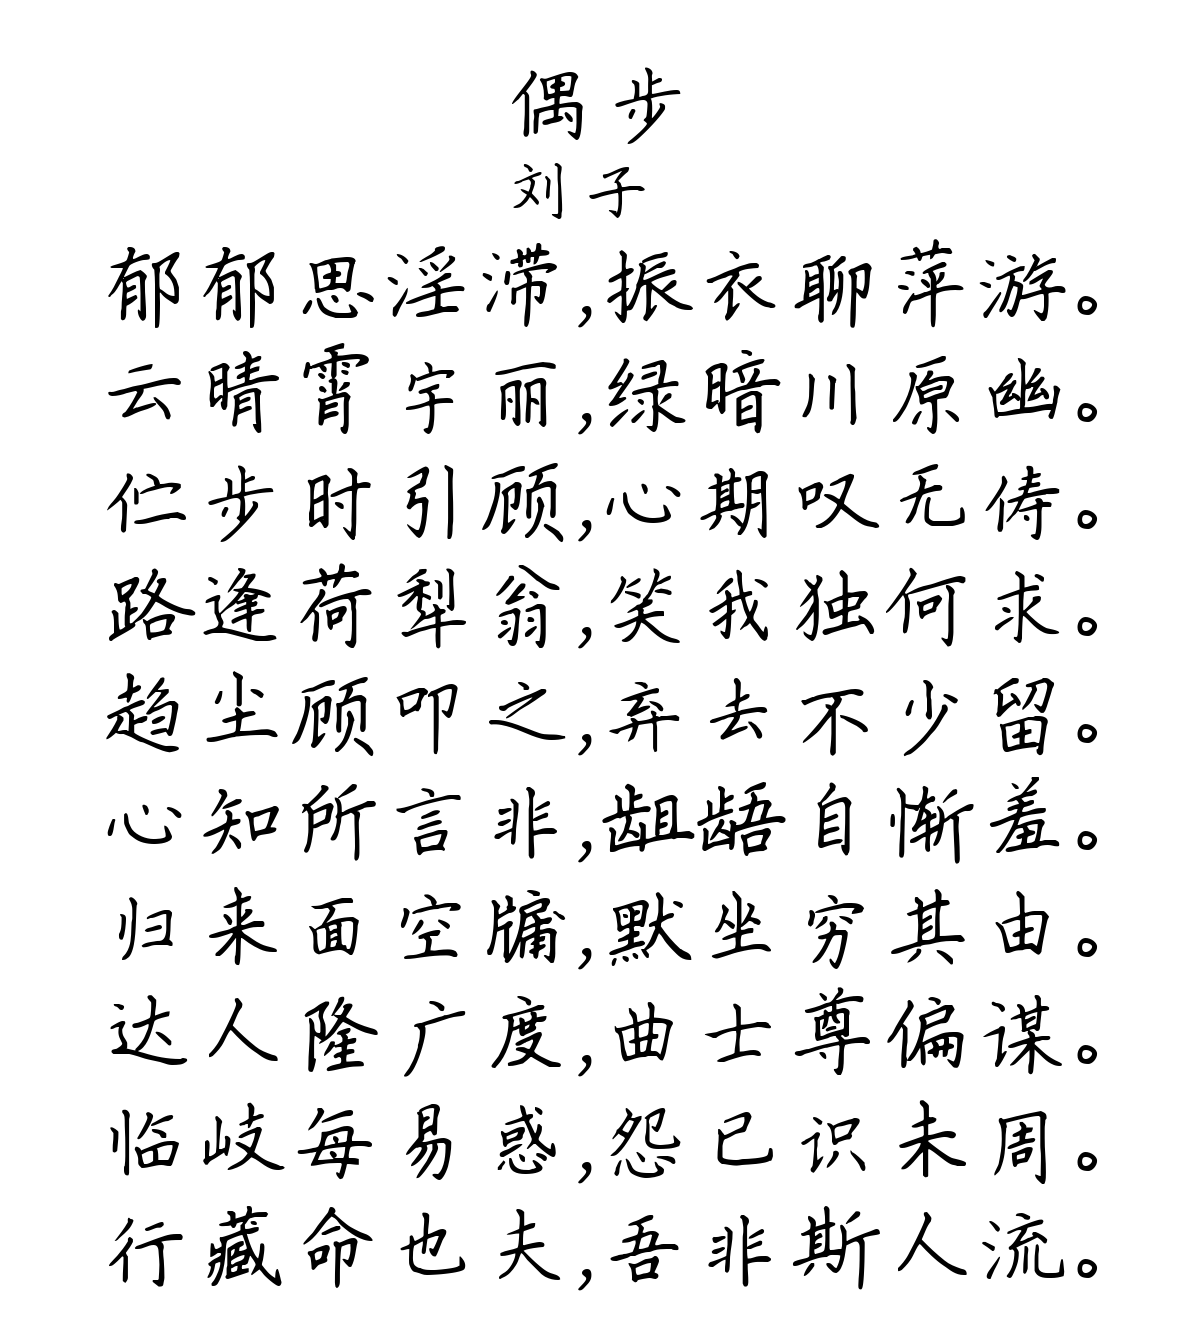 偶步
刘子
郁郁思淫滞,振衣聊萍游。
云晴霄宇丽,绿暗川原幽。
伫步时引顾,心期叹无俦。
路逢荷犁翁,笑我独何求。
趋尘顾叩之,弃去不少留。
心知所言非,龃龉自惭羞。
归来面空牖,默坐穷其由。
达人隆广度,曲士尊偏谋。
临岐每易惑,怨己识未周。
行藏命也夫,吾非斯人流。